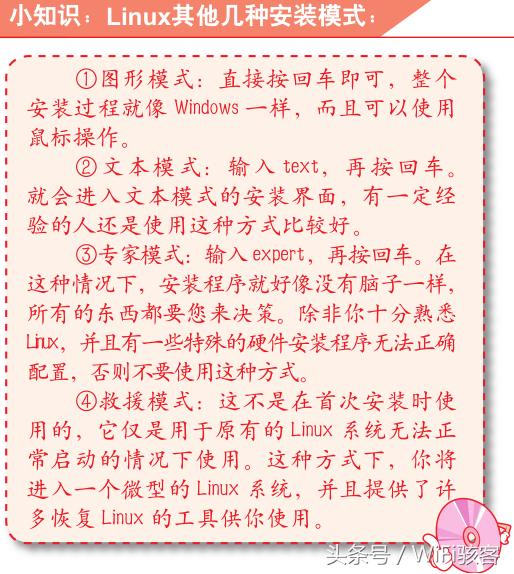 小知识：Linux其他几种安装模式：
①图形模式：直接按回车即可，整个
安装过程就像 Windows 一样，而且可以使用
鼠标操作。
②文本模式：输入 text，再按回车。
就会进入文本模式的安装界面，有一定经
验的人还是使用这种方式比较好。
③专家模式：输入 expert，再按回车。在
这种情况下，安装程序就好像没有脑子一样，
所有的东西都要您来决策。除非你十分熟悉
Linux，并且有一些特殊的硬件安装程序无法正确
配置，否则不要使用这种方式。
④救援模式：这不是在首次安装时使
用的，它仅是用于原有的 Linux 系统无法正
常启动的情况下使用。这种方式下，你将
进入一个微型的 Linux 系统，并且提供了许
多恢复 Linux 的工具供你使用。
头条号 / WiFi骇客